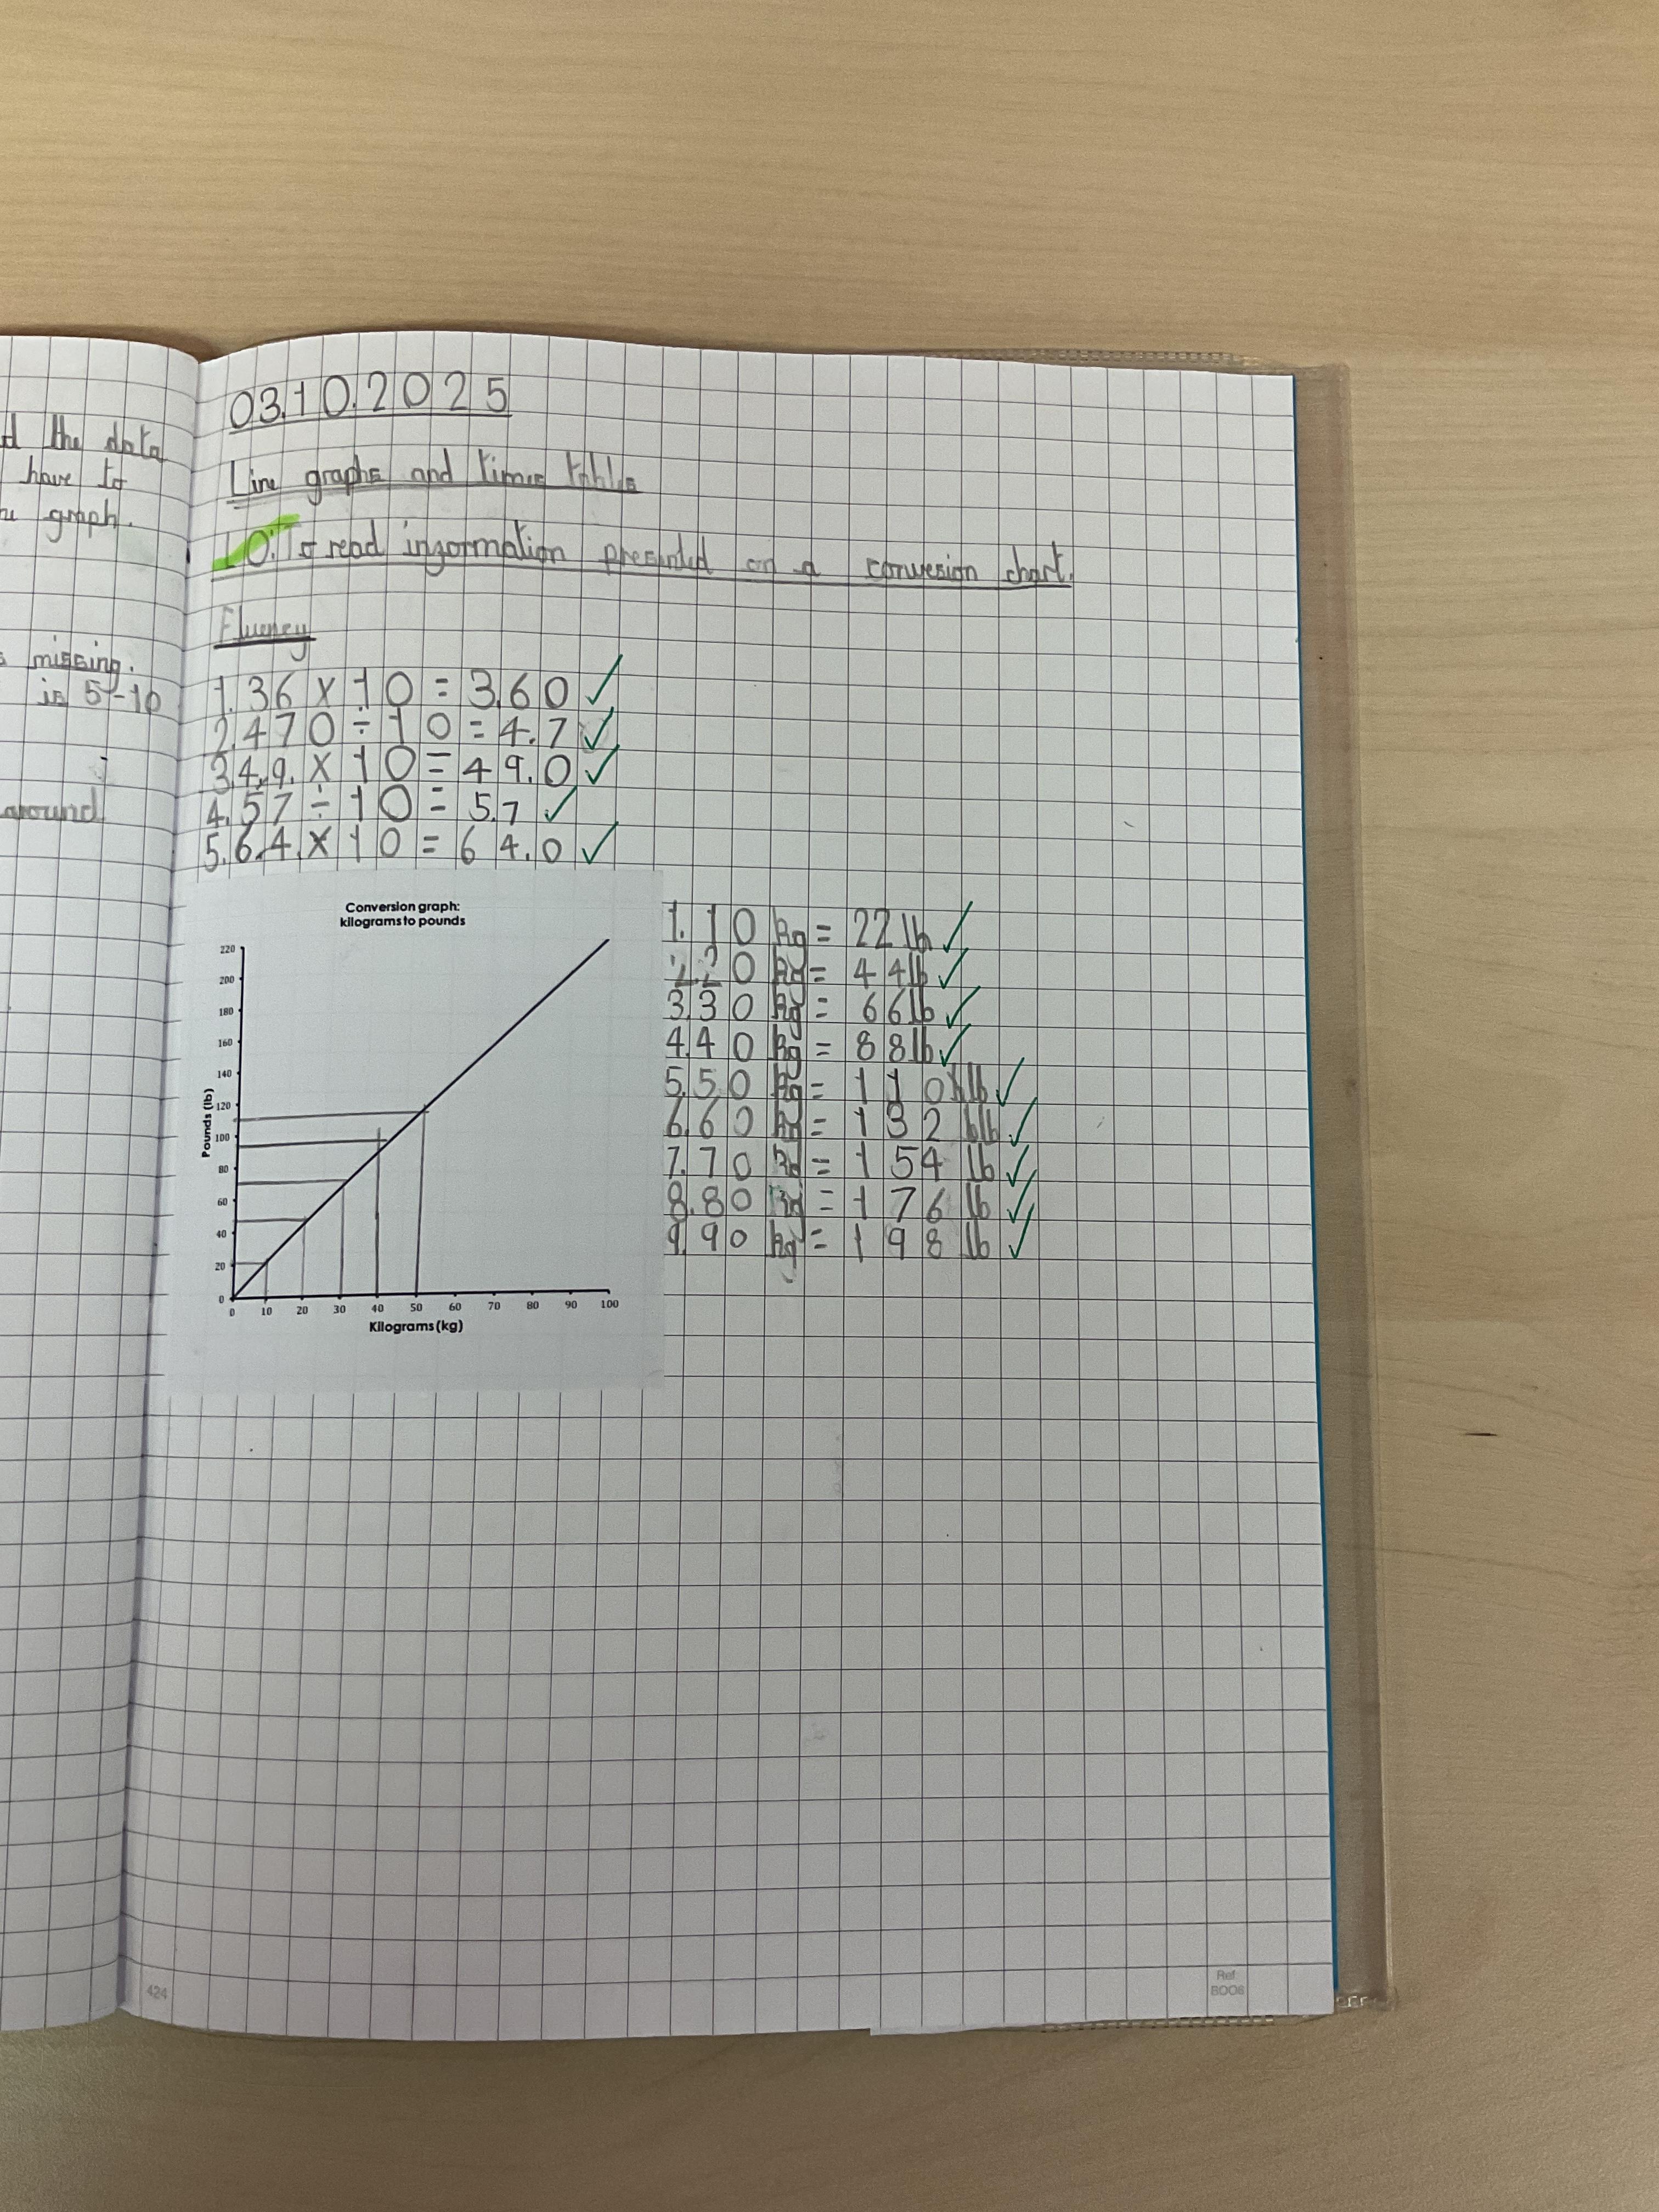 d the data
have to
graph.
missing.
is 5-10
around
03.10.2025
Line graphs and times tables
LO: To read information presented on a converesion chart.
Fluency
1. 36 x 10 = 3.60
2. 470 ÷ 10 = 4.7
3. 4.9. x 10 = 49.0
4. 57 ÷ 10 = 5.7
5. 6.4. x 10 = 64.0
Conversion graph:
kilograms to pounds
220
200
180
160
140
120
100
80
60
40
20
0
Pounds (lb)
0 10 20 30 40 50 60 70 80 90 100
Kilograms (kg)
1. 10 kg = 22 lb
2. 20 kg = 44 lb
3. 30 kg = 66 lb
4. 40 kg = 88 lb
5. 50 kg = 110 lb
6. 60 kg = 132 lb
7. 70 kg = 154 lb
8. 80 kg = 176 lb
9. 90 kg = 198 lb
424
Ref
BOO8